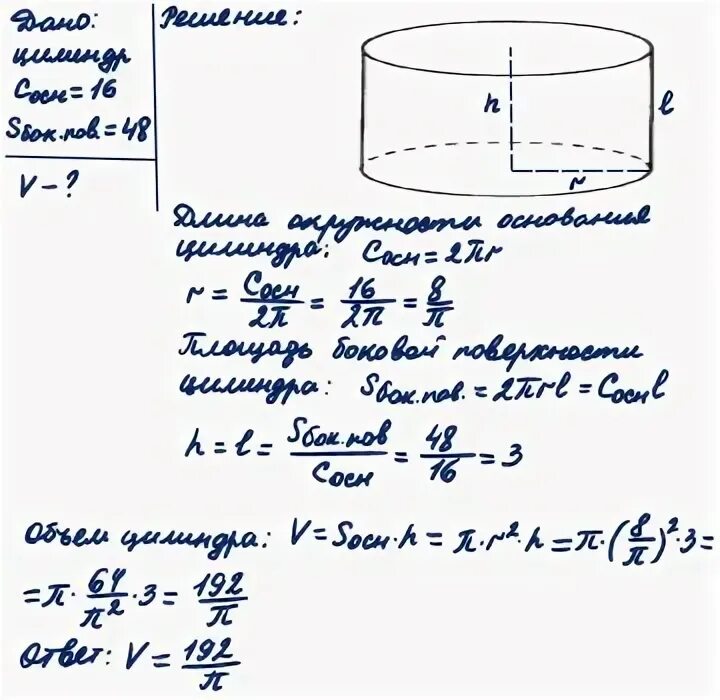 Дано:
цилиндр
Cосн = 16
Sбок.пов. = 48
V - ?
Решение:
h
l
r
Длина окружности основания
цилиндра: Cосн = 2πr
r = Cосн/2π = 16/2π = 8/π
Площадь боковой поверхности
цилиндра: Sбок.пов. = 2πrl = Cоснl
h = l = Sбок.пов/Cосн = 48/16 = 3
Объем цилиндра: V = Sосн·h = π·r²·h = π·(8/π)²·3 =
= π·64/π²·3 = 192/π
Ответ: V = 192/π